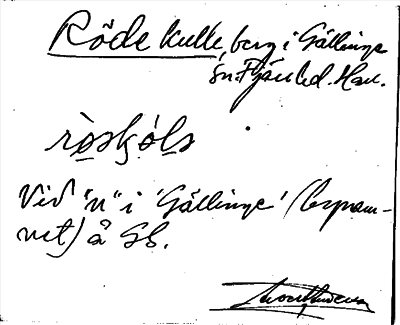 Röde kulle, berg i Gällinge
sn. Fjäre hd. Hall.
Vid "n" i 'Gällinge' (bynam-
net) å Gb.